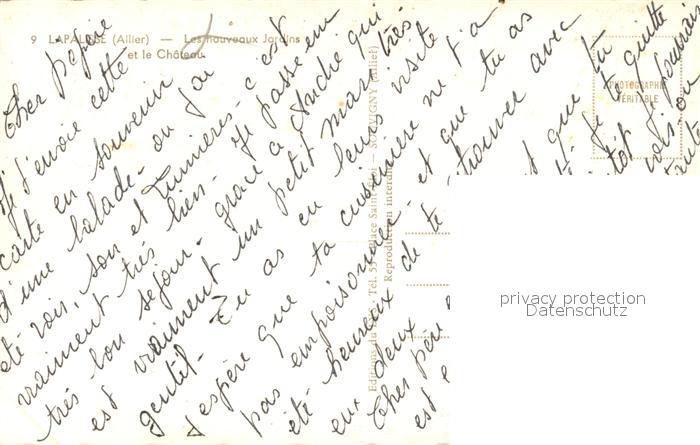 9 LAPALISSE (Allier) — Les nouveaux Jardins
et le Château
Cher pépère
Je t'envoie cette
carte en souvenir
d'une balade ou j'ai
été voir, son et lumières - c'est
vraiment très bien. Je passe un
très bon séjour. grace à André qui
est vraiment un petit mari très
gentil. Tu as eu leurs visite
J'espère que ta cuisinière ne t'a
pas empoisonner - et que tu as
été heureux de te trouver avec
eux deux
Cher père
est
que tu
Je te quitte
voir
PHOTOGRAPHIE
VÉRITABLE
Editions du
Tél. 55
Place Saint
SOUVIGNY (Allier)
Reproduction interdite
privacy protection
Datenschutz